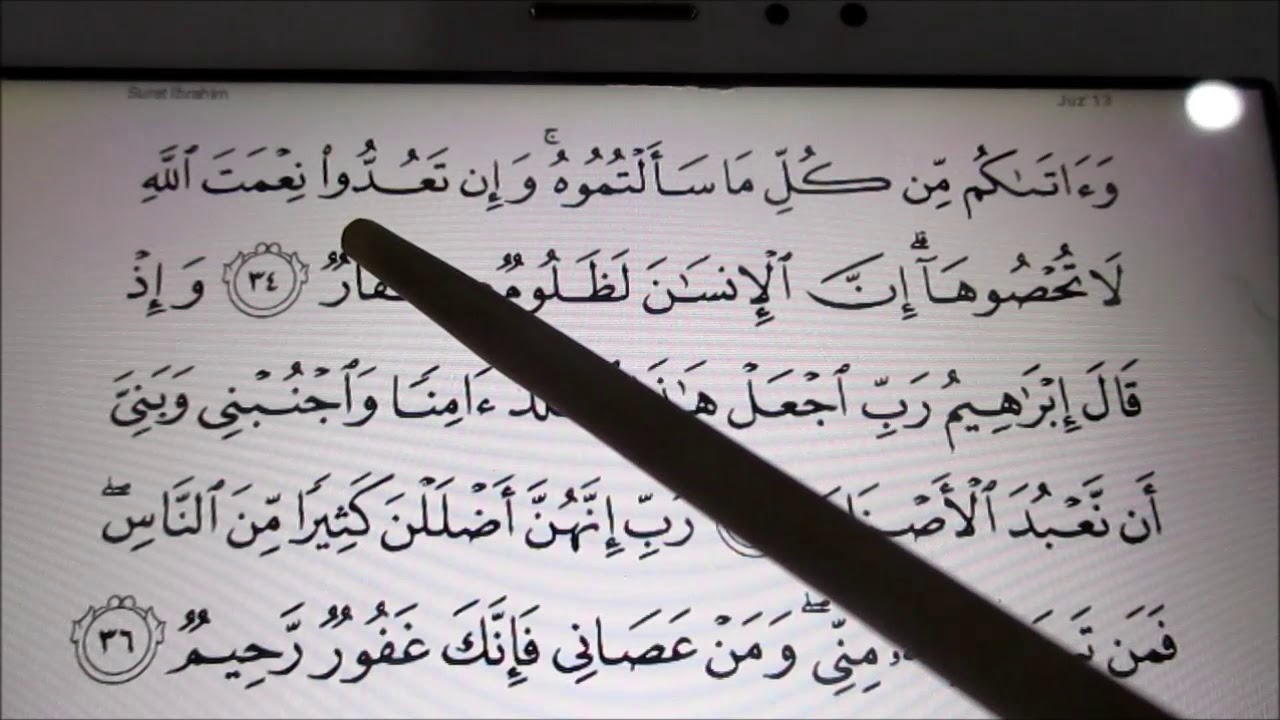 Surat Ibrahim Juz 13
وَءَاتَىٰكُم مِّن كُلِّ مَا سَأَلْتُمُوهُ ۚ وَإِن تَعُدُّوا۟ نِعْمَتَ ٱللَّهِ
لَا تُحْصُوهَآ ۗ إِنَّ ٱلْإِنسَـٰنَ لَظَلُومٌ ٣٤ وَإِذْ
قَالَ إِبْرَٰهِيمُ رَبِّ ٱجْعَلْ ءَامِنًا وَٱجْنُبْنِى وَبَنِىَّ
أَن نَّعْبُدَ رَبِّ إِنَّهُنَّ أَضْلَلْنَ كَثِيرًا مِّنَ ٱلنَّاسِ ۖ
فَمَن مِنِّى ۖ وَمَنْ عَصَانِى فَإِنَّكَ غَفُورٌ رَّحِيمٌ ٣٦